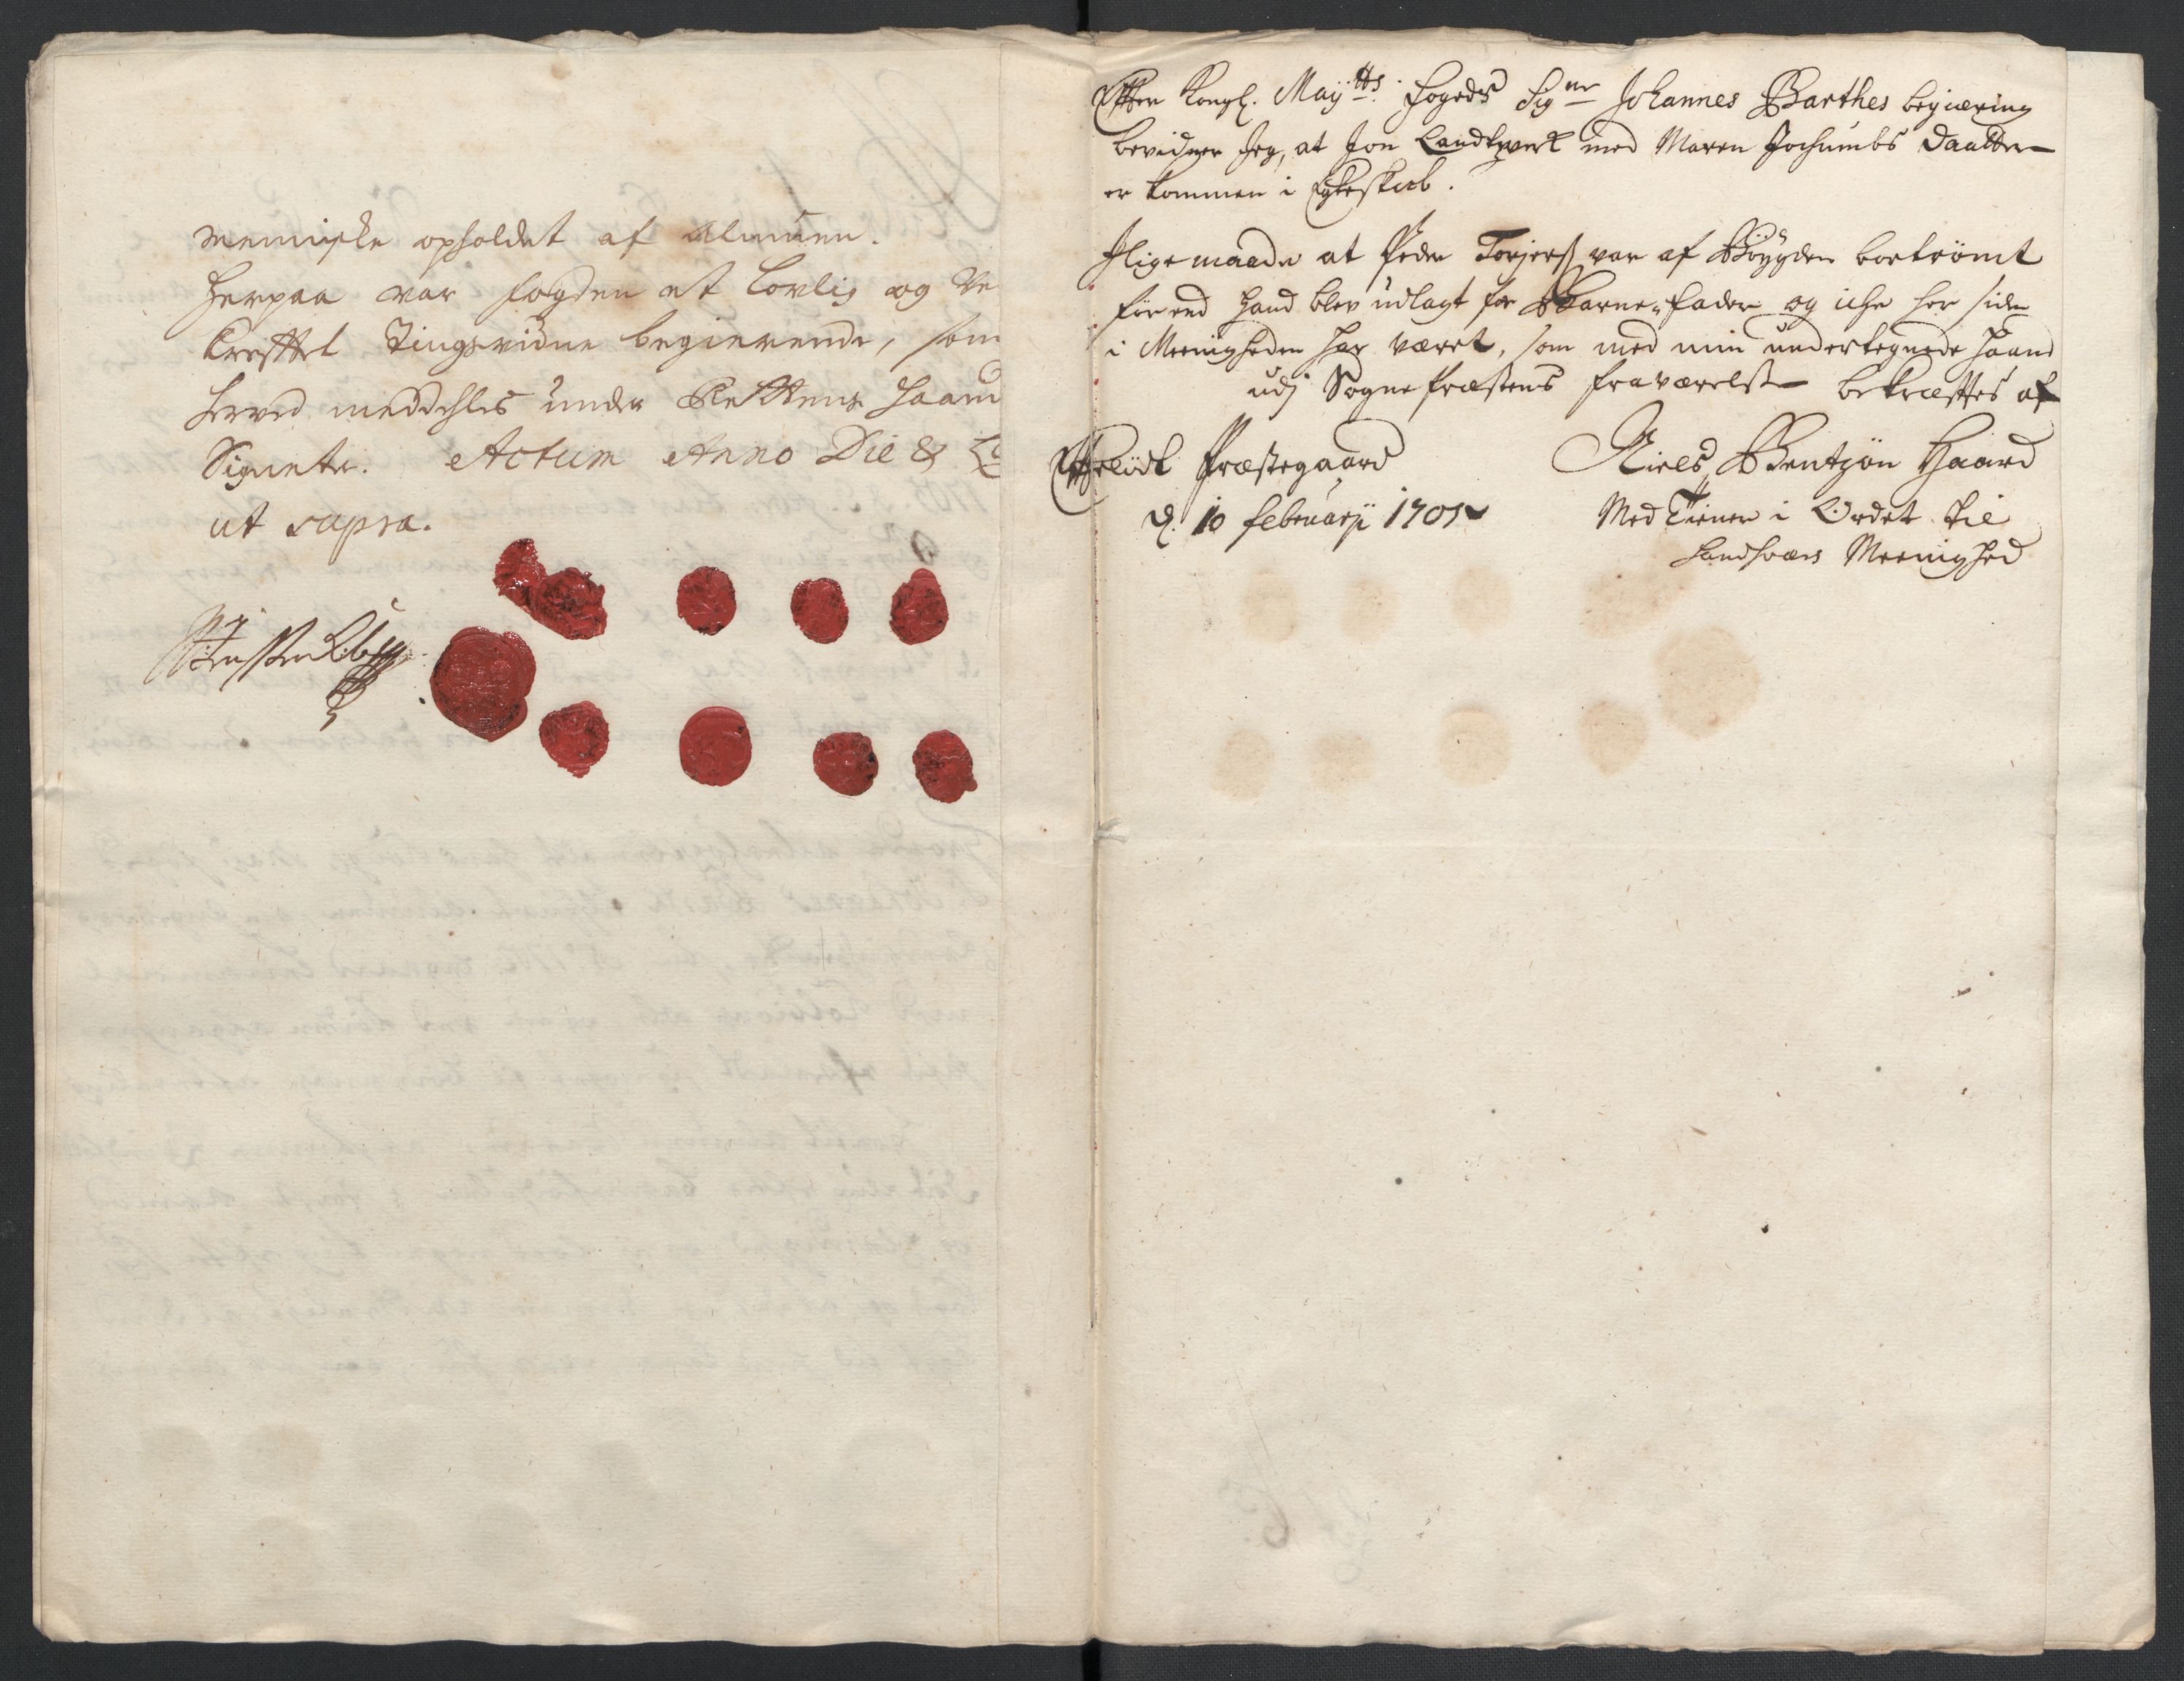 menniske opholdet af Almuen.
Herpaa var fogden et lovlig og be
kræfftet Tingsvidne begierende, som
herved meddehles under Rettens Haand
Signete. Actum Anno Die &
ut supra.
Effter Kongl. Maÿtts. fogeds Sigr Johannes Barthes begiæring
bevidner jeg, at Jon Landqverk med Maren Jochumbs daatter
er kommen i Egteskab.
Jlige maade at Peder Torjers var af Bøygden bortrømt
førend hand blev udlagt for Barne-fader og iche her siden
i Meenigheden har været, som med min undertegnede haand
udj Sognepræstens fraværelse bekræfftes af
Præstegaard
d. 10 februarij 1705
Niels Bentzøn Gaard
Med Tiener i Ordet til
Meenighed